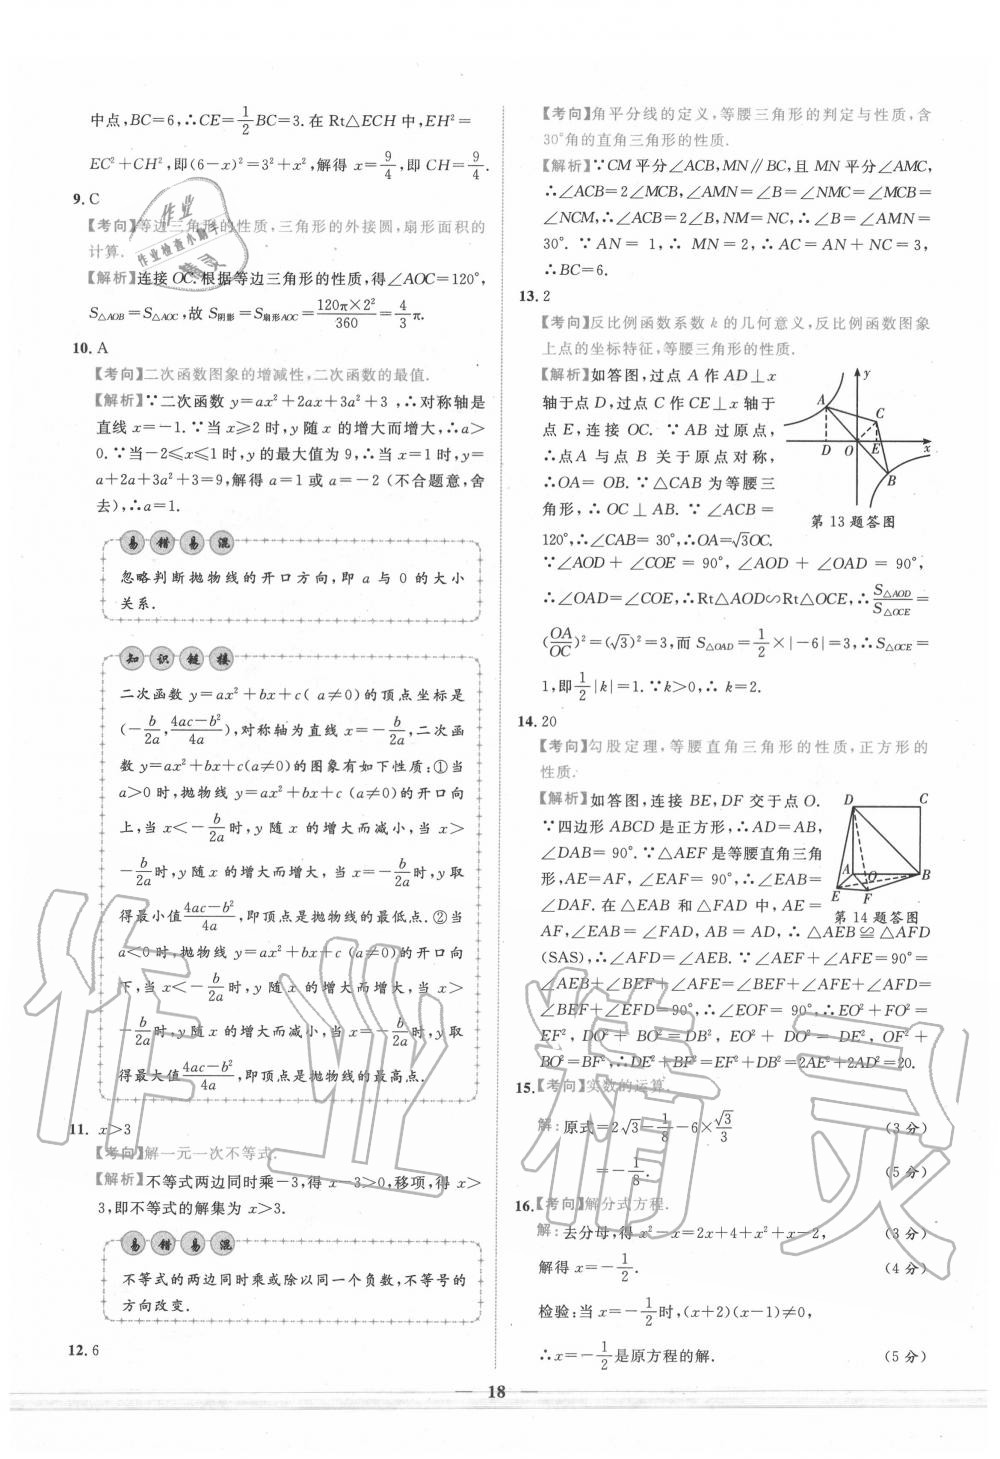 中点,BC=6,∴CE=1/2BC=3.在 Rt△ECH 中,EH²=
EC²+CH²,即(6-x)²=3²+x²,解得 x=9/4,即 CH=9/4.
9. C
【考向】等边三角形的性质,三角形的外接圆,扇形面积的
计算.
【解析】连接 OC.根据等边三角形的性质,得∠AOC=120°,
S△AOB=S△AOC,故 S阴影=S扇形AOC=120π×2²/360=4/3π.
10. A
【考向】二次函数图象的增减性,二次函数的最值.
【解析】∵二次函数 y=ax²+2ax+3a²+3,∴对称轴是
直线 x=-1.∵当 x≥2 时,y 随 x 的增大而增大,∴a>
0.∵当-2≤x≤1时,y 的最大值为 9,∴当 x=1时,y=
a+2a+3a²+3=9,解得 a=1 或 a=-2 (不合题意,舍
去),∴a=1.
易错易混
忽略判断抛物线的开口方向,即 a 与 0 的大小
关系.
知识链接
二次函数 y=ax²+bx+c( a≠0)的顶点坐标是
(-b/2a,4ac-b²/4a),对称轴为直线 x=-b/2a,二次函
数 y=ax²+bx+c(a≠0)的图象有如下性质:①当
a>0 时,抛物线 y=ax²+bx+c (a≠0) 的开口向
上,当 x<-b/2a时,y 随 x 的增大而减小,当 x>
-b/2a时,y 随 x 的增大而增大,当 x=-b/2a时,y 取
得最小值4ac-b²/4a,即顶点是抛物线的最低点.②当
a<0 时,抛物线 y=ax²+bx+c (a≠0)的开口向
下,当 x<-b/2a时,y 随 x 的增大而增大,当 x>
-b/2a时,y 随 x 的增大而减小,当 x=-b/2a时,y 取
得最大值4ac-b²/4a,即顶点是抛物线的最高点.
11. x>3
【考向】解一元一次不等式.
【解析】不等式两边同时乘-3,得 x-3>0,移项,得 x>
3,即不等式的解集为 x>3.
易错易混
不等式的两边同时乘或除以同一个负数,不等号的
方向改变.
12. 6
【考向】角平分线的定义,等腰三角形的判定与性质,含
30°角的直角三角形的性质.
【解析】∵CM 平分∠ACB,MN∥BC,且 MN 平分∠AMC,
∴∠ACB=2∠MCB,∠AMN=∠B=∠NMC=∠MCB=
∠NCM,∴∠ACB=2∠B,NM=NC,∴∠B=∠AMN=
30°. ∵AN = 1, ∴MN=2,∴AC=AN+NC=3,
∴BC=6.
13. 2
【考向】反比例函数系数 k 的几何意义,反比例函数图象
上点的坐标特征,等腰三角形的性质.
【解析】如答图,过点 A 作 AD⊥x
轴于点 D,过点 C 作 CE⊥x 轴于
点 E,连接 OC. ∵ AB 过原点,
∴点A 与点 B 关于原点对称,
∴OA= OB. ∵△CAB 为等腰三
角形,∴OC⊥AB. ∵∠ACB=
120°,∴∠CAB= 30°,∴OA=√3OC.
y
A
C
D
O
E
x
B
第 13 题答图
∵∠AOD + ∠COE = 90°,∠AOD + ∠OAD = 90°,
∴∠OAD=∠COE,∴Rt△AOD∽Rt△OCE,∴S△AOD/S△OCE=
(OA/OC)²=(√3)²=3,而 S△OAD=1/2×|-6|=3,∴S△OCE=
1,即1/2|k|=1.∵k>0,∴ k=2.
14. 20
【考向】勾股定理,等腰直角三角形的性质,正方形的
性质.
【解析】如答图,连接 BE,DF 交于点 O.
∵四边形 ABCD 是正方形,∴AD=AB,
∠DAB= 90°.∵△AEF是等腰直角三角
形,AE=AF, ∠EAF= 90°,∴∠EAB=
∠DAF.在△EAB 和△FAD 中,AE=
D
C
A
O
B
E
F
第 14 题答图
AF,∠EAB=∠FAD,AB=AD,∴△AEB≌△AFD
(SAS),∴∠AFD=∠AEB.∵∠AEF+∠AFE=90°=
∠AEB+∠BEF+∠AFE=∠BEF+∠AFE+∠AFD=
∠BEF+∠EFD=90°,∴∠EOF= 90°,∴EO²+FO²=
EF², DO²+ BO²=DB², EO²+ DO²=DE²,OF²+
BO²=BF²,∴DE²+BF²=EF²+DB²=2AE²+2AD²=20.
15.【考向】实数的运算.
解:原式=2√3-1/8-6×√3/3 (3 分)
=-1/8. (5 分)
16.【考向】解分式方程.
解:去分母,得 x²-x=2x+4+x²+x-2, (3 分)
解得 x=-1/2. (4 分)
检验:当 x=-1/2时,(x+2)(x-1)≠0,
∴x=-1/2是原方程的解. (5 分)
18
作业精灵
作业
作业检查小帮手